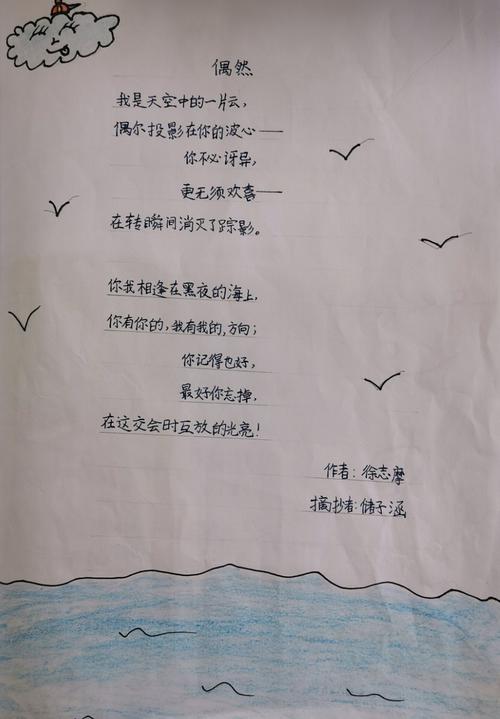 偶然
我是天空中的一片云，
偶尔投影在你的波心——
你不必讶异，
更无须欢喜——
在转瞬间消灭了踪影。
你我相逢在黑夜的海上，
你有你的，我有我的，方向；
你记得也好，
最好你忘掉，
在这交会时互放的光亮！
作者：徐志摩
摘抄者：储子涵